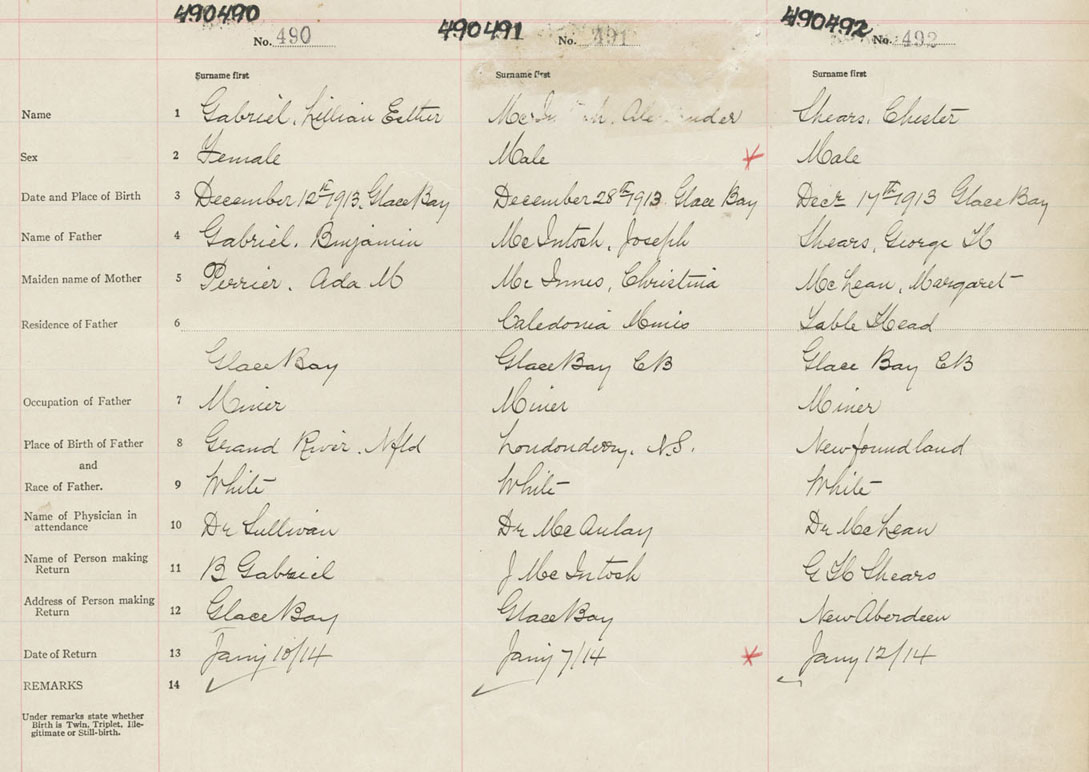 490490 490491 490492
No. 490 No. 491 No. 492
Surname first Surname first Surname first
Name 1 Gabriel, Lillian Esther McIn h, Ale nder Shears, Chester
Sex 2 Female Male Male
Date and Place of Birth 3 December 12th 1913, Glace Bay December 28th 1913 Glace Bay Decr 17th 1913 Glace Bay
Name of Father 4 Gabriel, Benjamin McIntosh, Joseph Shears, George H
Maiden name of Mother 5 Perrier, Ada M McInnes, Christina McLean, Margaret
Residence of Father 6 Caledonia Mines Sable Head
Glace Bay Glace Bay CB Glace Bay CB
Occupation of Father 7 Miner Miner Miner
Place of Birth of Father 8 Grand River, Nfld Londonderry, N.S. Newfoundland
and
Race of Father. 9 White White White
Name of Physician in
attendance 10 Dr Sullivan Dr McAulay Dr McLean
Name of Person making
Return 11 B Gabriel J McIntosh G H Shears
Address of Person making
Return 12 Glace Bay Glace Bay New Aberdeen
Date of Return 13 Jany 10/14 Jany 7/14 Jany 12/14
REMARKS 14
Under remarks state whether
Birth is Twin, Triplet, Ille-
gitimate or Still-birth.